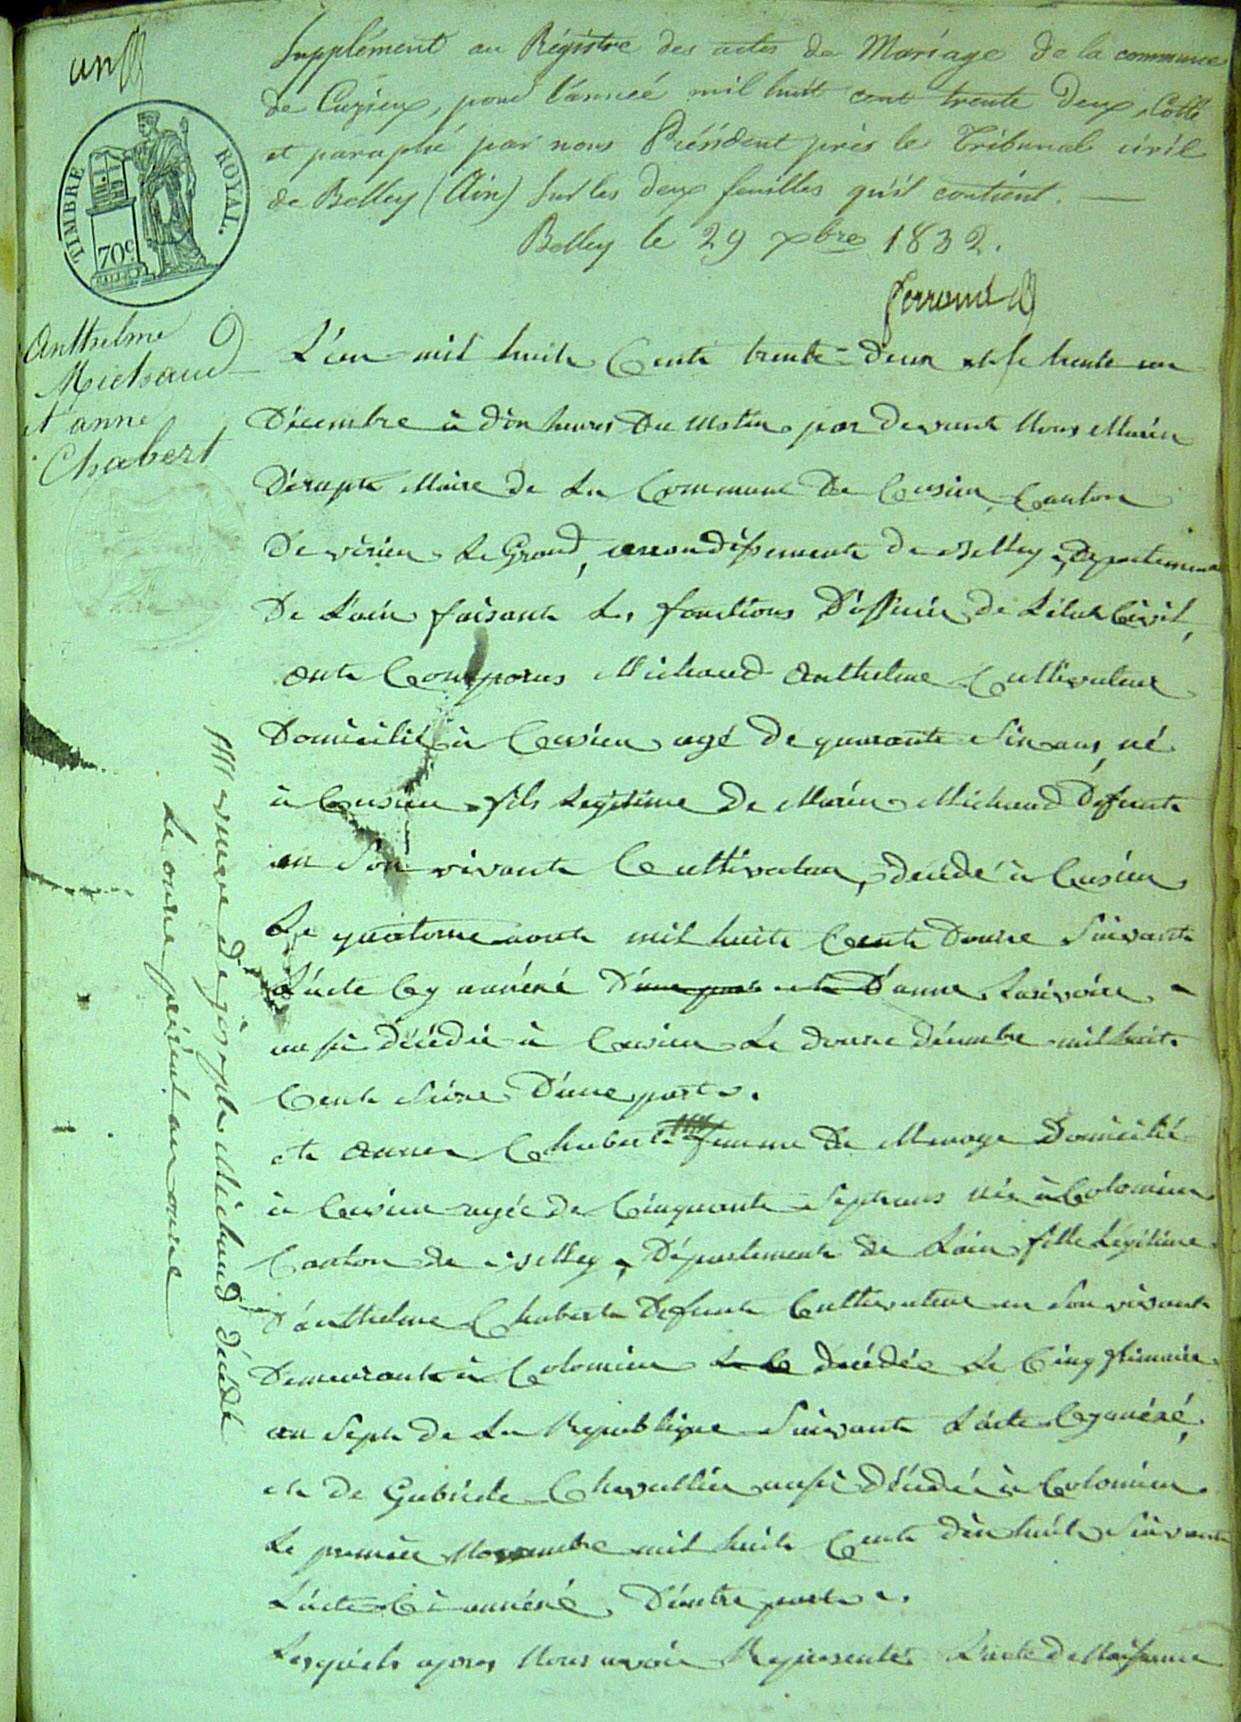 un
Supplément au Régistre des actes de Mariage de la commune
de Cuzieux, pour l'année mil huit cent trente deux, Cotté
et paraphé par nous Président près le Tribunal civil
de Belley (Ain) sur les deux feuilles qu'il contient. —
Belley le 29 xbre 1832.
Ferrand
TIMBRE ROYAL.
70c
Anthelme
Michaud
et anne
Chabert
L'an mil huit Cent trente-deux et le trente un
Décembre à dix heures du Matin par devant Nous Marin
maire de La Commune De Cusieu, Canton
De virieu Le Grand, arrondissement de Belley, Département
De L'ain faisant Les fonctions D'officier de L'état Civil,
ont Comparus Michaud Anthelme Cultivateur
Domicilié à Cusieu agé de quarante Six ans, né
à Cusieu fils Legitime de Marin Michaud Défunt
en Son vivant Cultivateur, décédé à Cusieu
Le quatorze aout mil huit Cent Douze Suivant
L'acte Cy annéxé D'une part et D'anne
aussi décédée à Cusieu Le douze décembre mil huit
Cent Seize D'une part.
et anne Chabert femme de Menage Domicilié
à Cusieu agée de Cinquante Sept ans née à Colomieu
Canton de Belley, Département de L'ain fille Légitime
D'anthelme Chabert Defunt Cultivateur en Son vivant
Demeurant à Colomieu décédé Le Cinq frimaire
an Sept de La Republique Suivant L'acte Cy annéxé,
et de Gabriele Chevallier aussi décédée à Colomieu
Le premier Novembre mil huit Cent dix huit Suivant
L'acte Ci annéxé D'autre part.
Lesquels apres Nous avoir Representé L'acte de Naissance
veuve de joseph Michaud décédé
Le onze